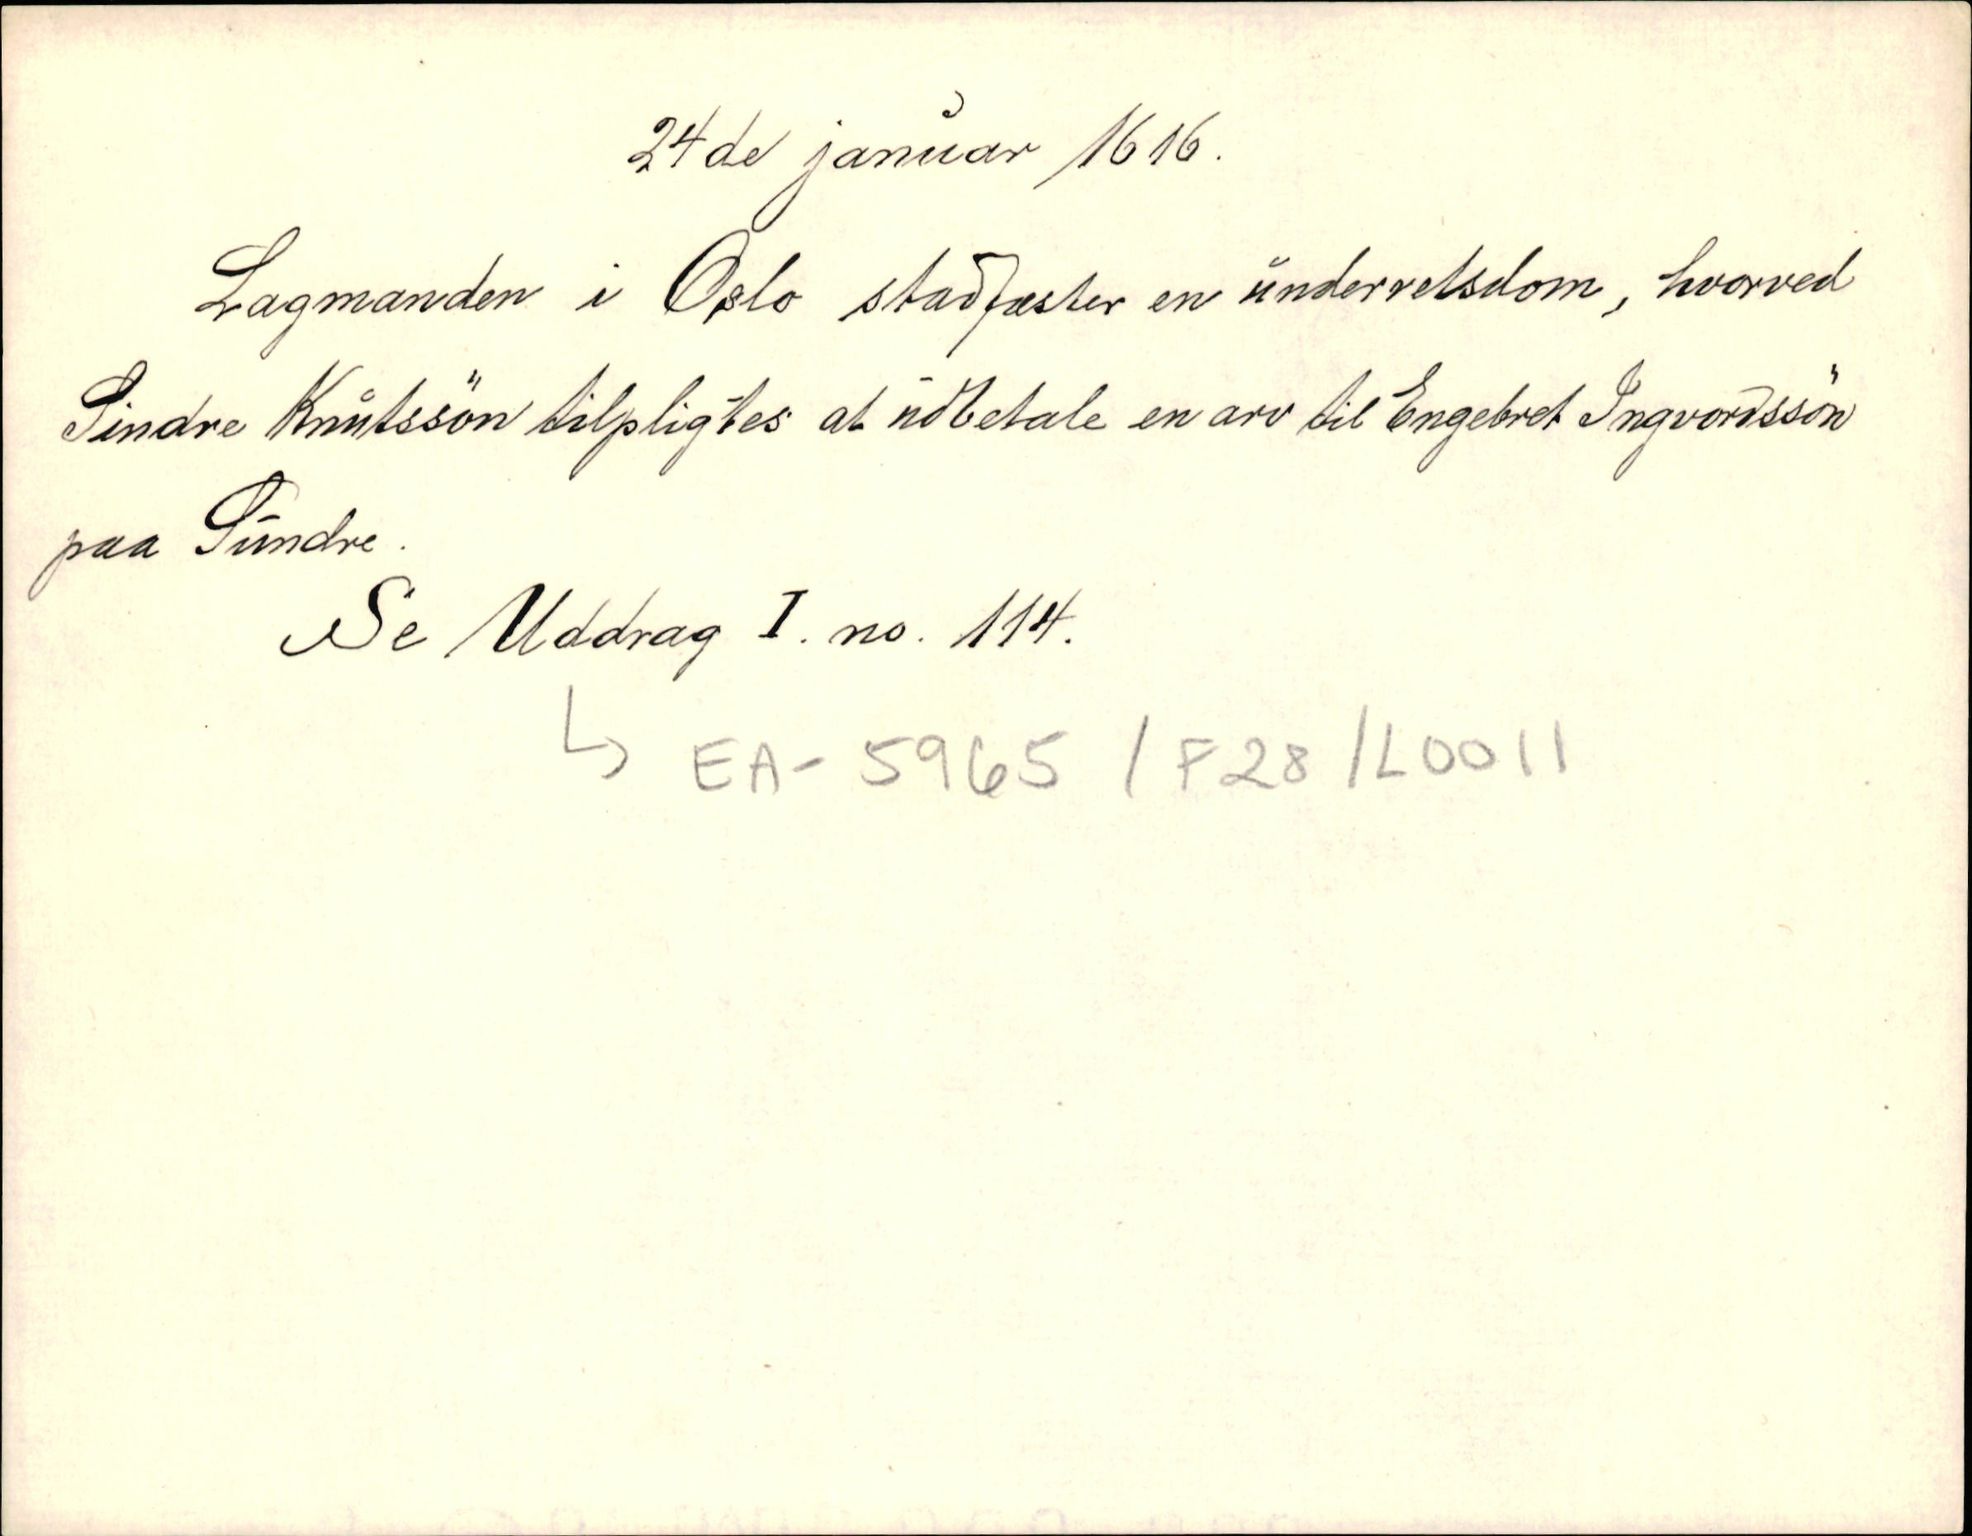 24de januar 1616.
Lagmanden i Oslo stadfæster en underretsdom, hvorved
Sindre Knutssön tilpligtes at udbetale en arv til Engebret Ingvordssön
paa Sundre.
Se Uddrag I. no. 114.
↳ EA-5965 / F28 / L0011